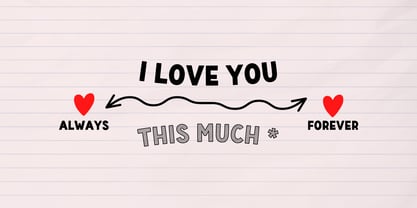 I LOVE YOU
ALWAYS
FOREVER
THIS MUCH *